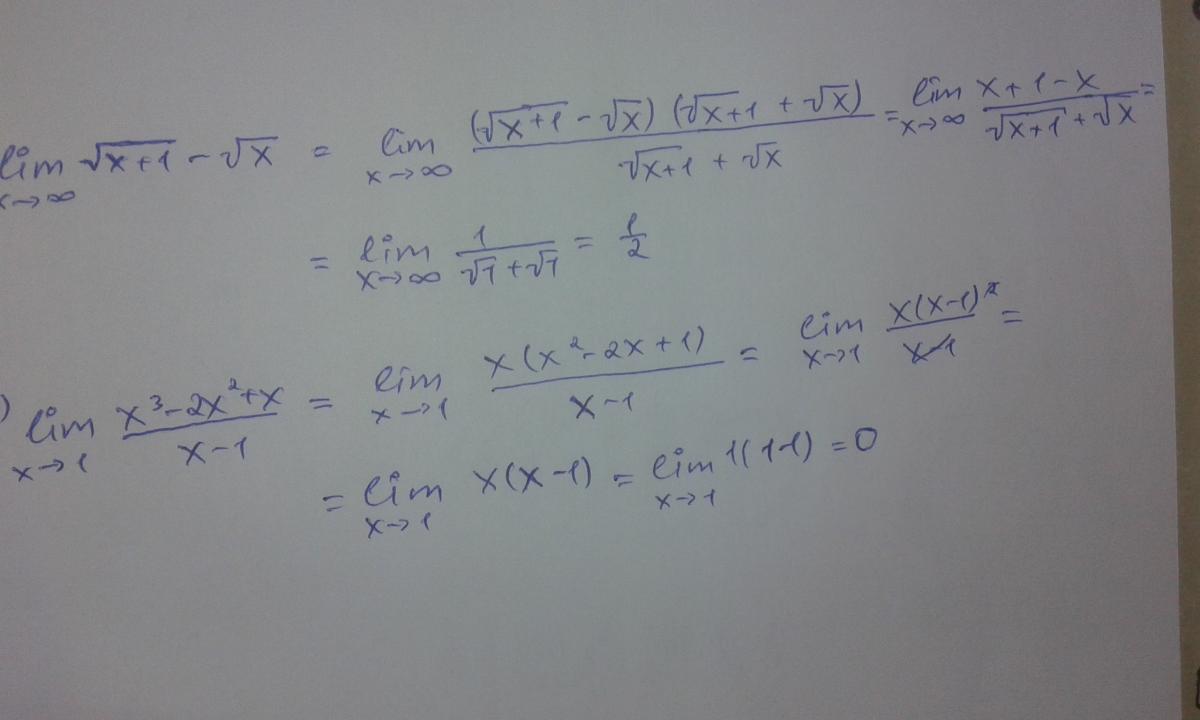 lim x→∞ √(x+1) − √x = lim x→∞ (√(x+1) − √x)(√x+1 + √x) / (√x+1 + √x) = lim x→∞ (x+1−x) / (√(x+1) + √x) =
= lim x→∞ 1 / (√1 + √1) = 1/2
) lim x→1 (x³−2x²+x) / (x−1) = lim x→1 x(x²−2x+1) / (x−1) = lim x→1 x(x−1)² / (x−1) =
= lim x→1 x(x−1) = lim x→1 1(1−1) = 0